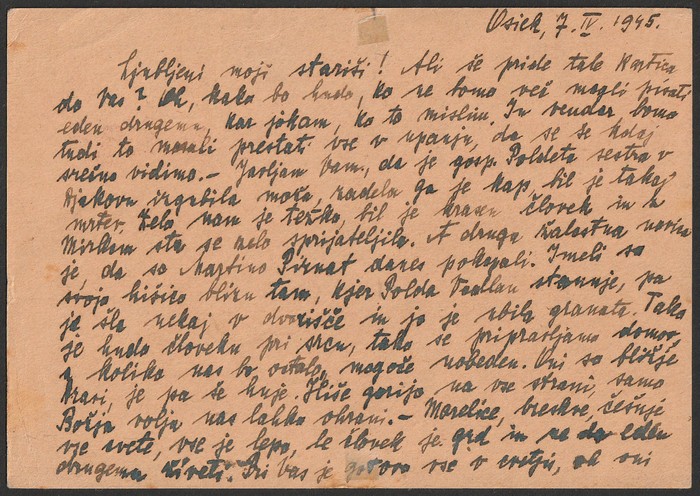 Osiek, 7. IV. 1945.
Ljubljeni moji stariši! Ali še pride tale Kartica
do Vas? Oh, kako bo hudo, ko ne bomo več mogli pisati
eden drugemu, kar jokam, ko to mislim. In vendar bomo
tudi to morali prestati vse v upanju, da se še kdaj
srečno vidimo. – Javljam Vam, da je gosp. Poldeta sestra v
Djakovu izgubila moža, zadela ga je kap, bil je takoj
mrtev. Zelo nam je težko, bil je krasen človek in z
Mirkom sta se zelo sprijateljila. A druga žalostna novica
je da so Martino Pirnat danes pokopali. Imeli so
svojo hišico blizu tam, kjer Polda stanuje, pa
je šla nekaj v dvorišče in jo je ubila granata. Tako
je hudo človeku pri srcu, tako se pripravljamo domov,
a koliko nas bo ostalo, mogoče nobeden. Oni so bližje
je pa še huje. Hiše gorijo na vse strani, samo
Božja volja nas lahko ohrani. – Marelice, breskve, češnje
vse svete, vse je lepo, le človek je grd in ne da eden
drugemu živeti. Pri Vas je gotovo vse v cvetju, oh oni